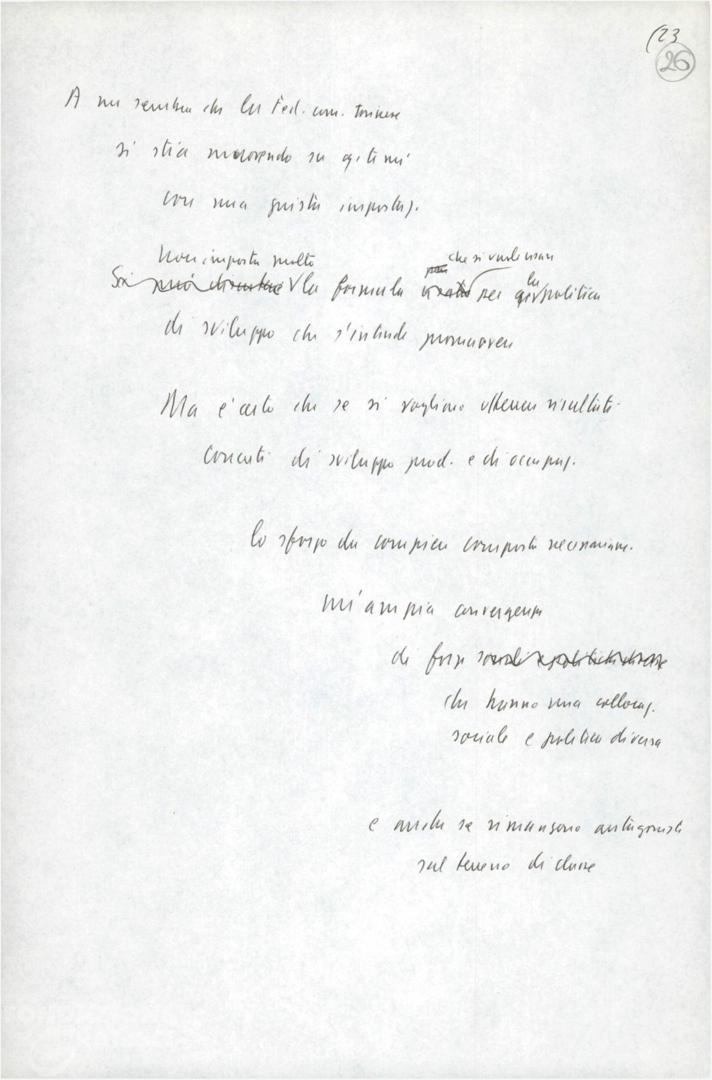 (23
26
A me sembra che la Fed. com. torinese
si stia movendo su q. temi
con una giusta impostaz.
non importa molto che si vuole usare
Si può discutere la formula usata per la politica
di sviluppo che s'intende promuovere
Ma è certo che se si vogliono ottenere risultati
concreti di sviluppo prod. e di occupaz.
lo sforzo da compiere comporta necessariam.
un'ampia convergenza
di forze sociali e politiche diverse
che hanno una collocaz.
sociale e politica diversa
e anche se rimangono antagoniste
sul terreno di classe